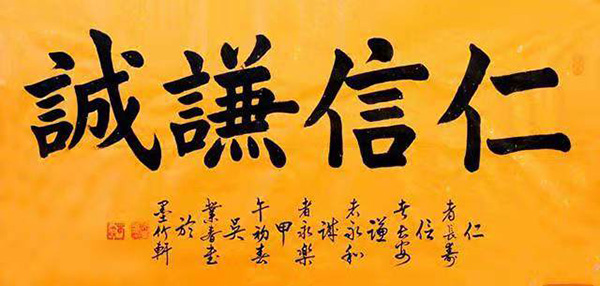 仁信謙誠
仁
者長壽
信
者安
謙
者永和
誠
者永樂
甲
午初春
吳
業春書
於
墨竹軒